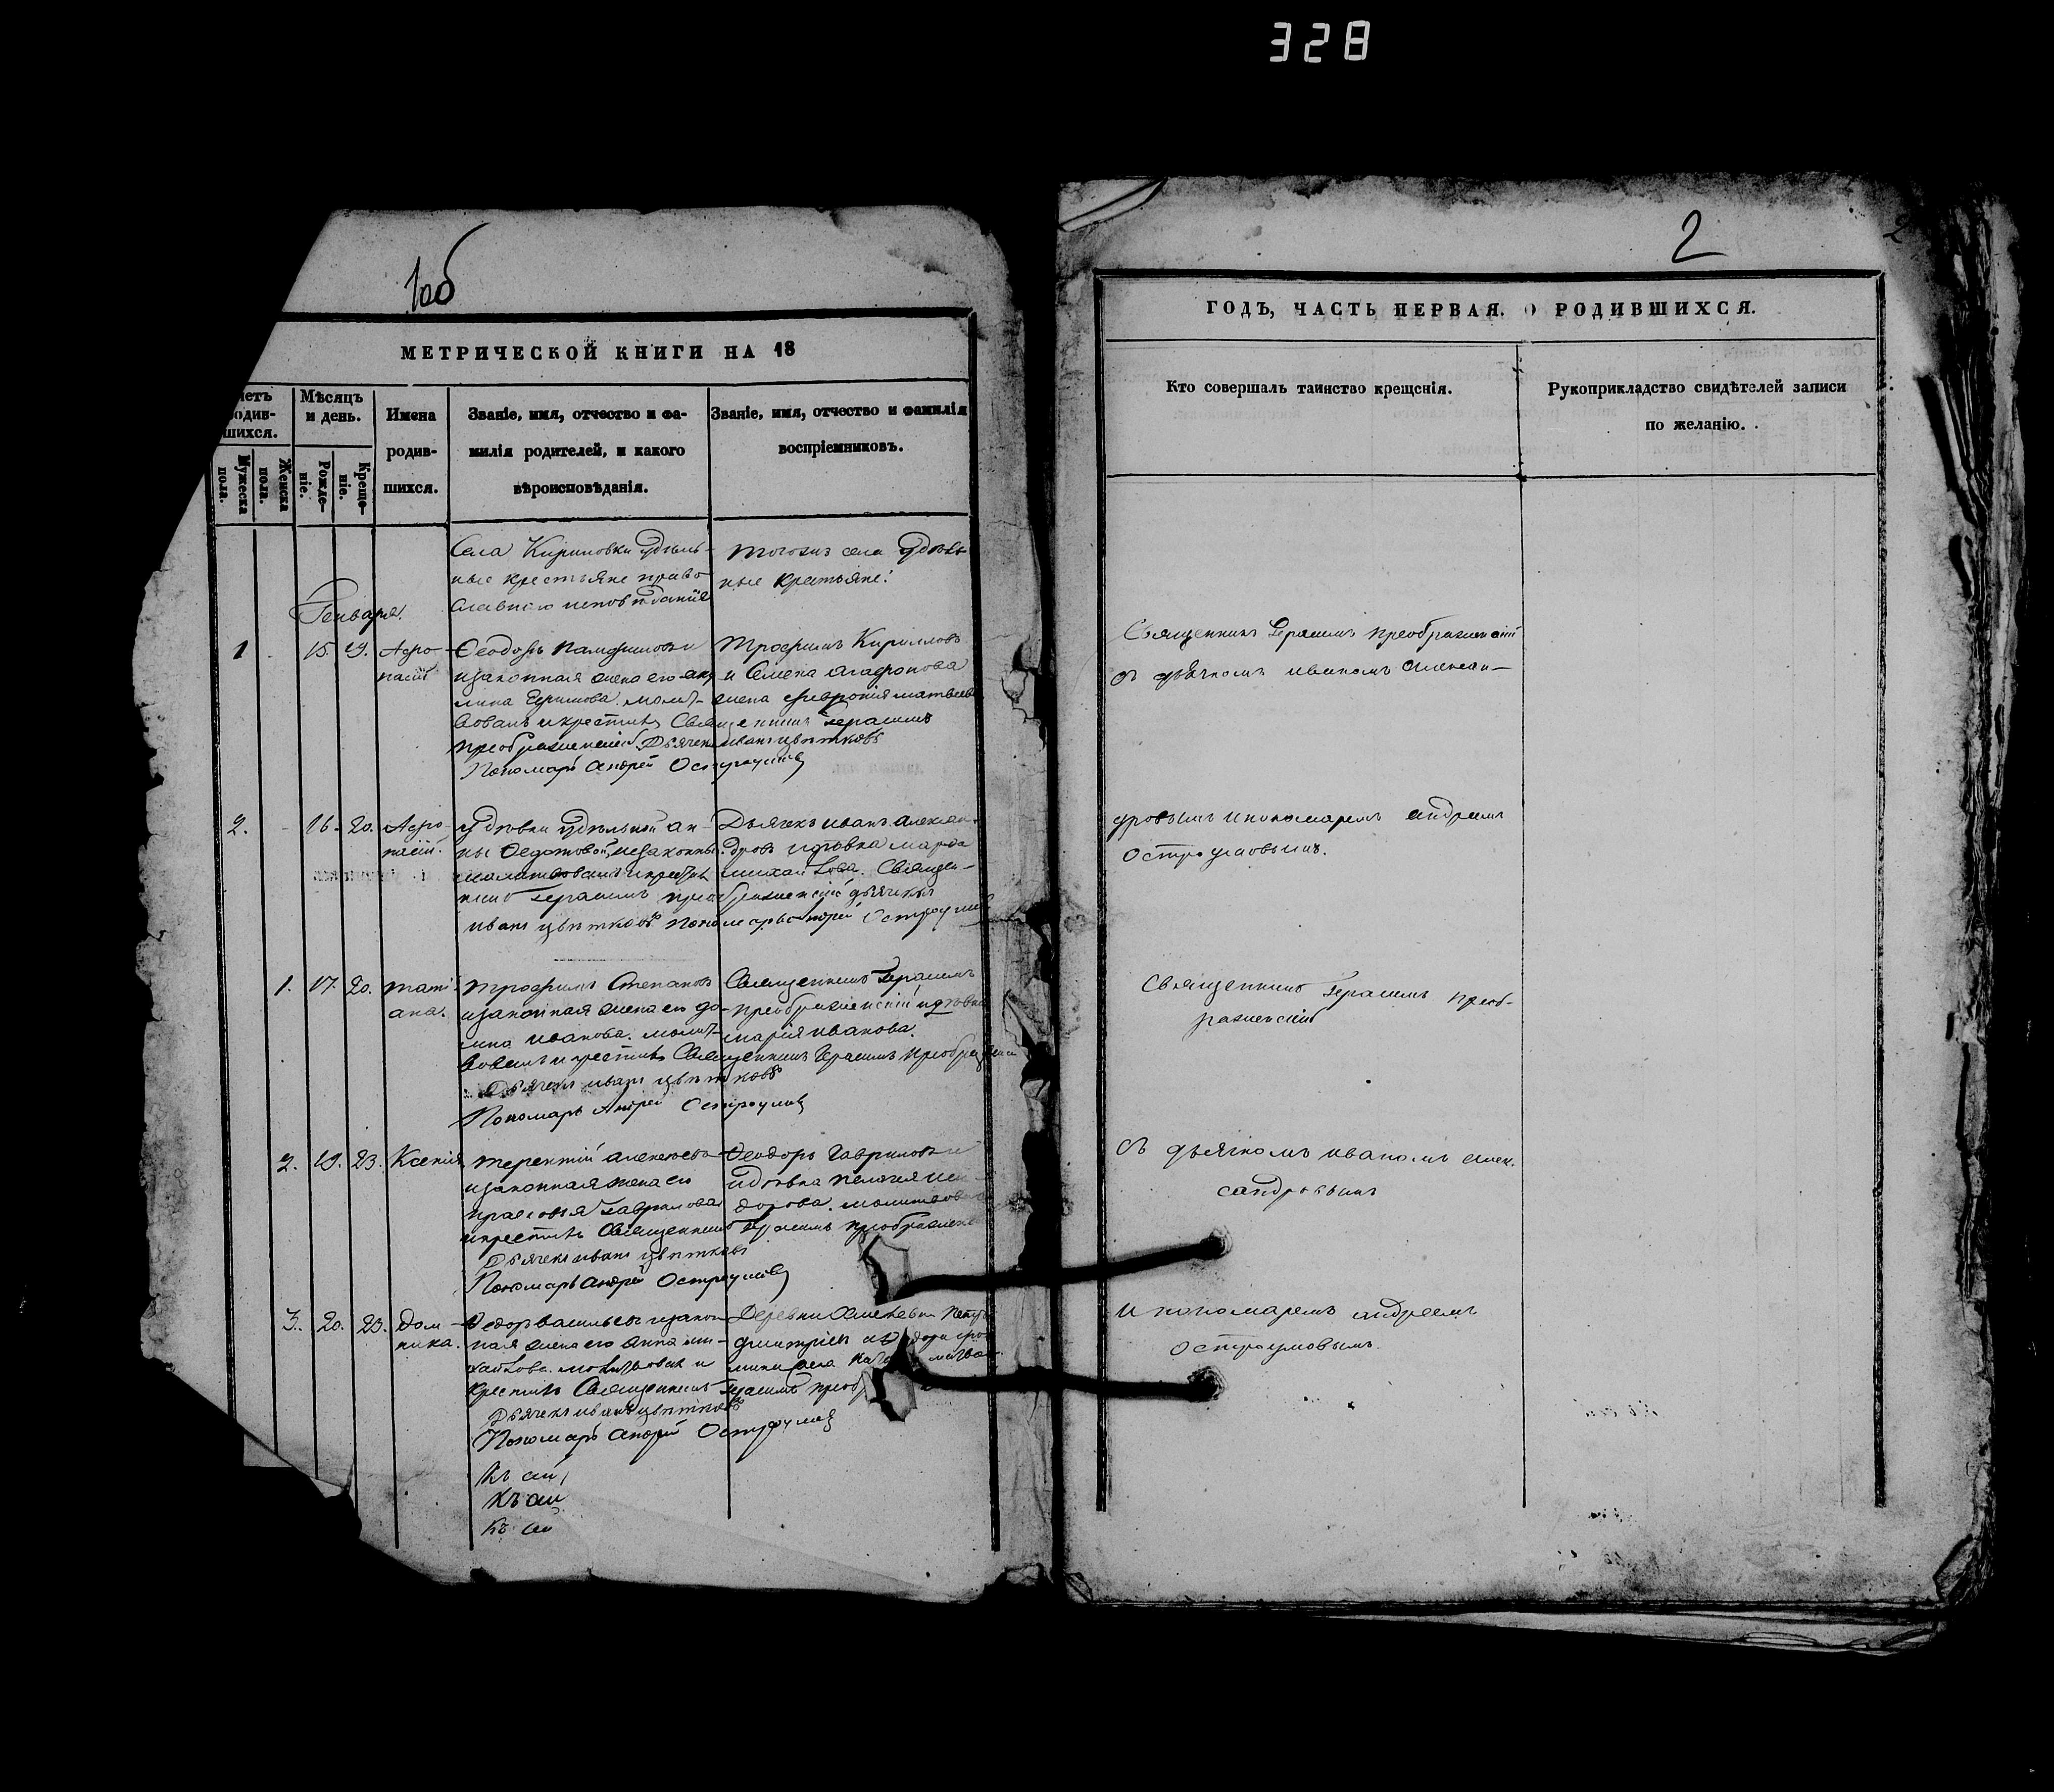 328
1об
МЕТРИЧЕСКОЙ КНИГИ НА 18
четъ
родив-
шихся.
Мужеска
пола.
Женска
пола.
Мѣсяцъ
и день.
Рожде-
ніе.
Креще-
ніе.
Имена
родив-
шихся.
Званіе, имя, отчество и фа-
милія родителей, и какого
вѣроисповѣданія.
Званіе, имя, отчество и фамилія
воспріемниковъ.
Села удѣль-
ные крестьяне право
славнаго исповѣданія
тогожъ села удѣль
ные крестьяне:
Генваря.
1 15. 19. Афо-
насій
Ѳеодоръ Памфиловъ
и законная жена его аку
лина Ефимова. молит-
вовалъ и крестилъ Священникъ Герасимъ
преображенскій. Дьячекъ иванъ цвѣтковъ
Пономарь андрей Остроумовъ
Трофимъ Кирилловъ
и Семена агафонова
жена феврония матвѣева
2. 16. 20. Афо-
насій.
у дѣвки удѣльной ан-
ны Ѳедотовой незаконный
молитвовалъ и крестилъ
Дьячекъ иванъ алексан-
дровъ и дѣвка марфа
михайлова. Священ-
никъ Герасимъ преображенскій дьячекъ
иванъ цвѣтковъ пономарь андрей Остроумовъ
1. 17. 20. тати-
ана.
трофимъ Степановъ
и законная жена его до-
мна иванова. молит-
вовалъ и крестилъ Священникъ Герасимъ преображенскій
Дьячекъ иванъ цвѣтковъ
Пономарь Андрей Остроумовъ
Священникъ Герасимъ
преображенскій и дѣвка
марія иванова.
2. 19. 23. Ксенія
терентій алексѣевъ
и законная жена его
прасковья гаврилова
и крестилъ Священникъ Герасимъ преображенскій
Дьячекъ иванъ цвѣтковъ
Пономарь андрей Остроумовъ
Ѳеодоръ Гавриловъ
и дѣвка пелагея
дорова. молитвовалъ
3. 20. 23. Дом-
ника.
Ѳедоръ васильевъ и закон
ная жена его анна ми-
хайлова. молитвовалъ и
крестилъ Священникъ Герасимъ преобр
Дьячекъ иванъ цвѣтковъ
Пономарь андрей Остроумовъ
Деревни Петръ
дмитріевъ
села
2
ГОДЪ, ЧАСТЬ ПЕРВАЯ. О РОДИВШИХСЯ.
Кто совершалъ таинство крещенія.
Рукоприкладство свидѣтелей записи
по желанію.
Священникъ Герасимъ преображенскій
съ дьячкомъ иваномъ алексан-
дровымъ и пономаремъ андреемъ
остроумовымъ.
Священникъ Герасимъ преоб-
раженскій
съ дьячкомъ иваномъ алек-
сандровымъ
и пономаремъ андреемъ
остроумовымъ.